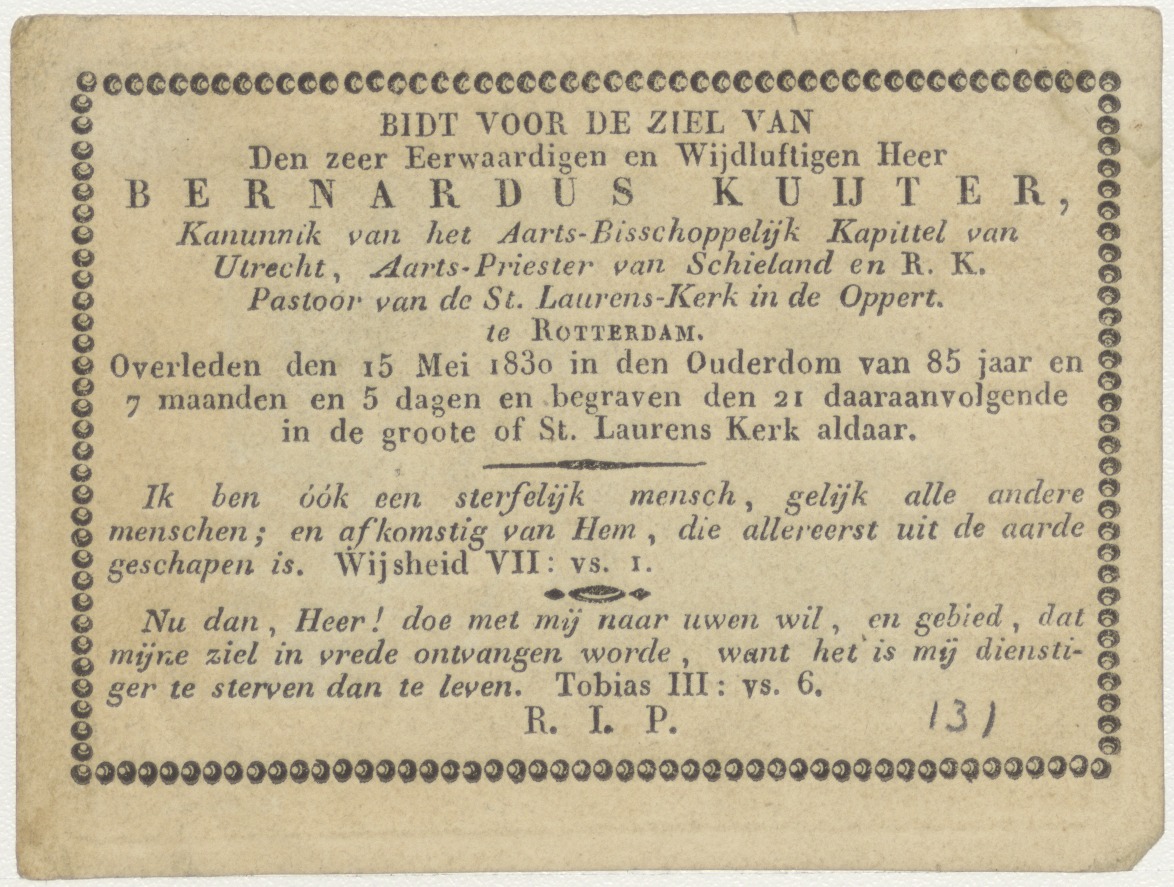 BIDT VOOR DE ZIEL VAN
Den zeer Eerwaardigen en Wijdluftigen Heer
BERNARDUS KUIJTER,
Kanunnik van het Aarts-Bisschoppelijk Kapittel van
Utrecht, Aarts-Priester van Schieland en R. K.
Pastoor van de St. Laurens-Kerk in de Oppert.
te ROTTERDAM.
Overleden den 15 Mei 1830 in den Ouderdom van 85 jaar en
7 maanden en 5 dagen en begraven den 21 daaraanvolgende
in de groote of St. Laurens Kerk aldaar.
Ik ben óók een sterfelijk mensch, gelijk alle andere
menschen; en afkomstig van Hem, die allereerst uit de aarde
geschapen is. Wijsheid VII: vs. 1.
Nu dan, Heer! doe met mij naar uwen wil, en gebied, dat
mijne ziel in vrede ontvangen worde, want het is mij diensti-
ger te sterven dan te leven. Tobias III: vs. 6.
R. I. P.
131